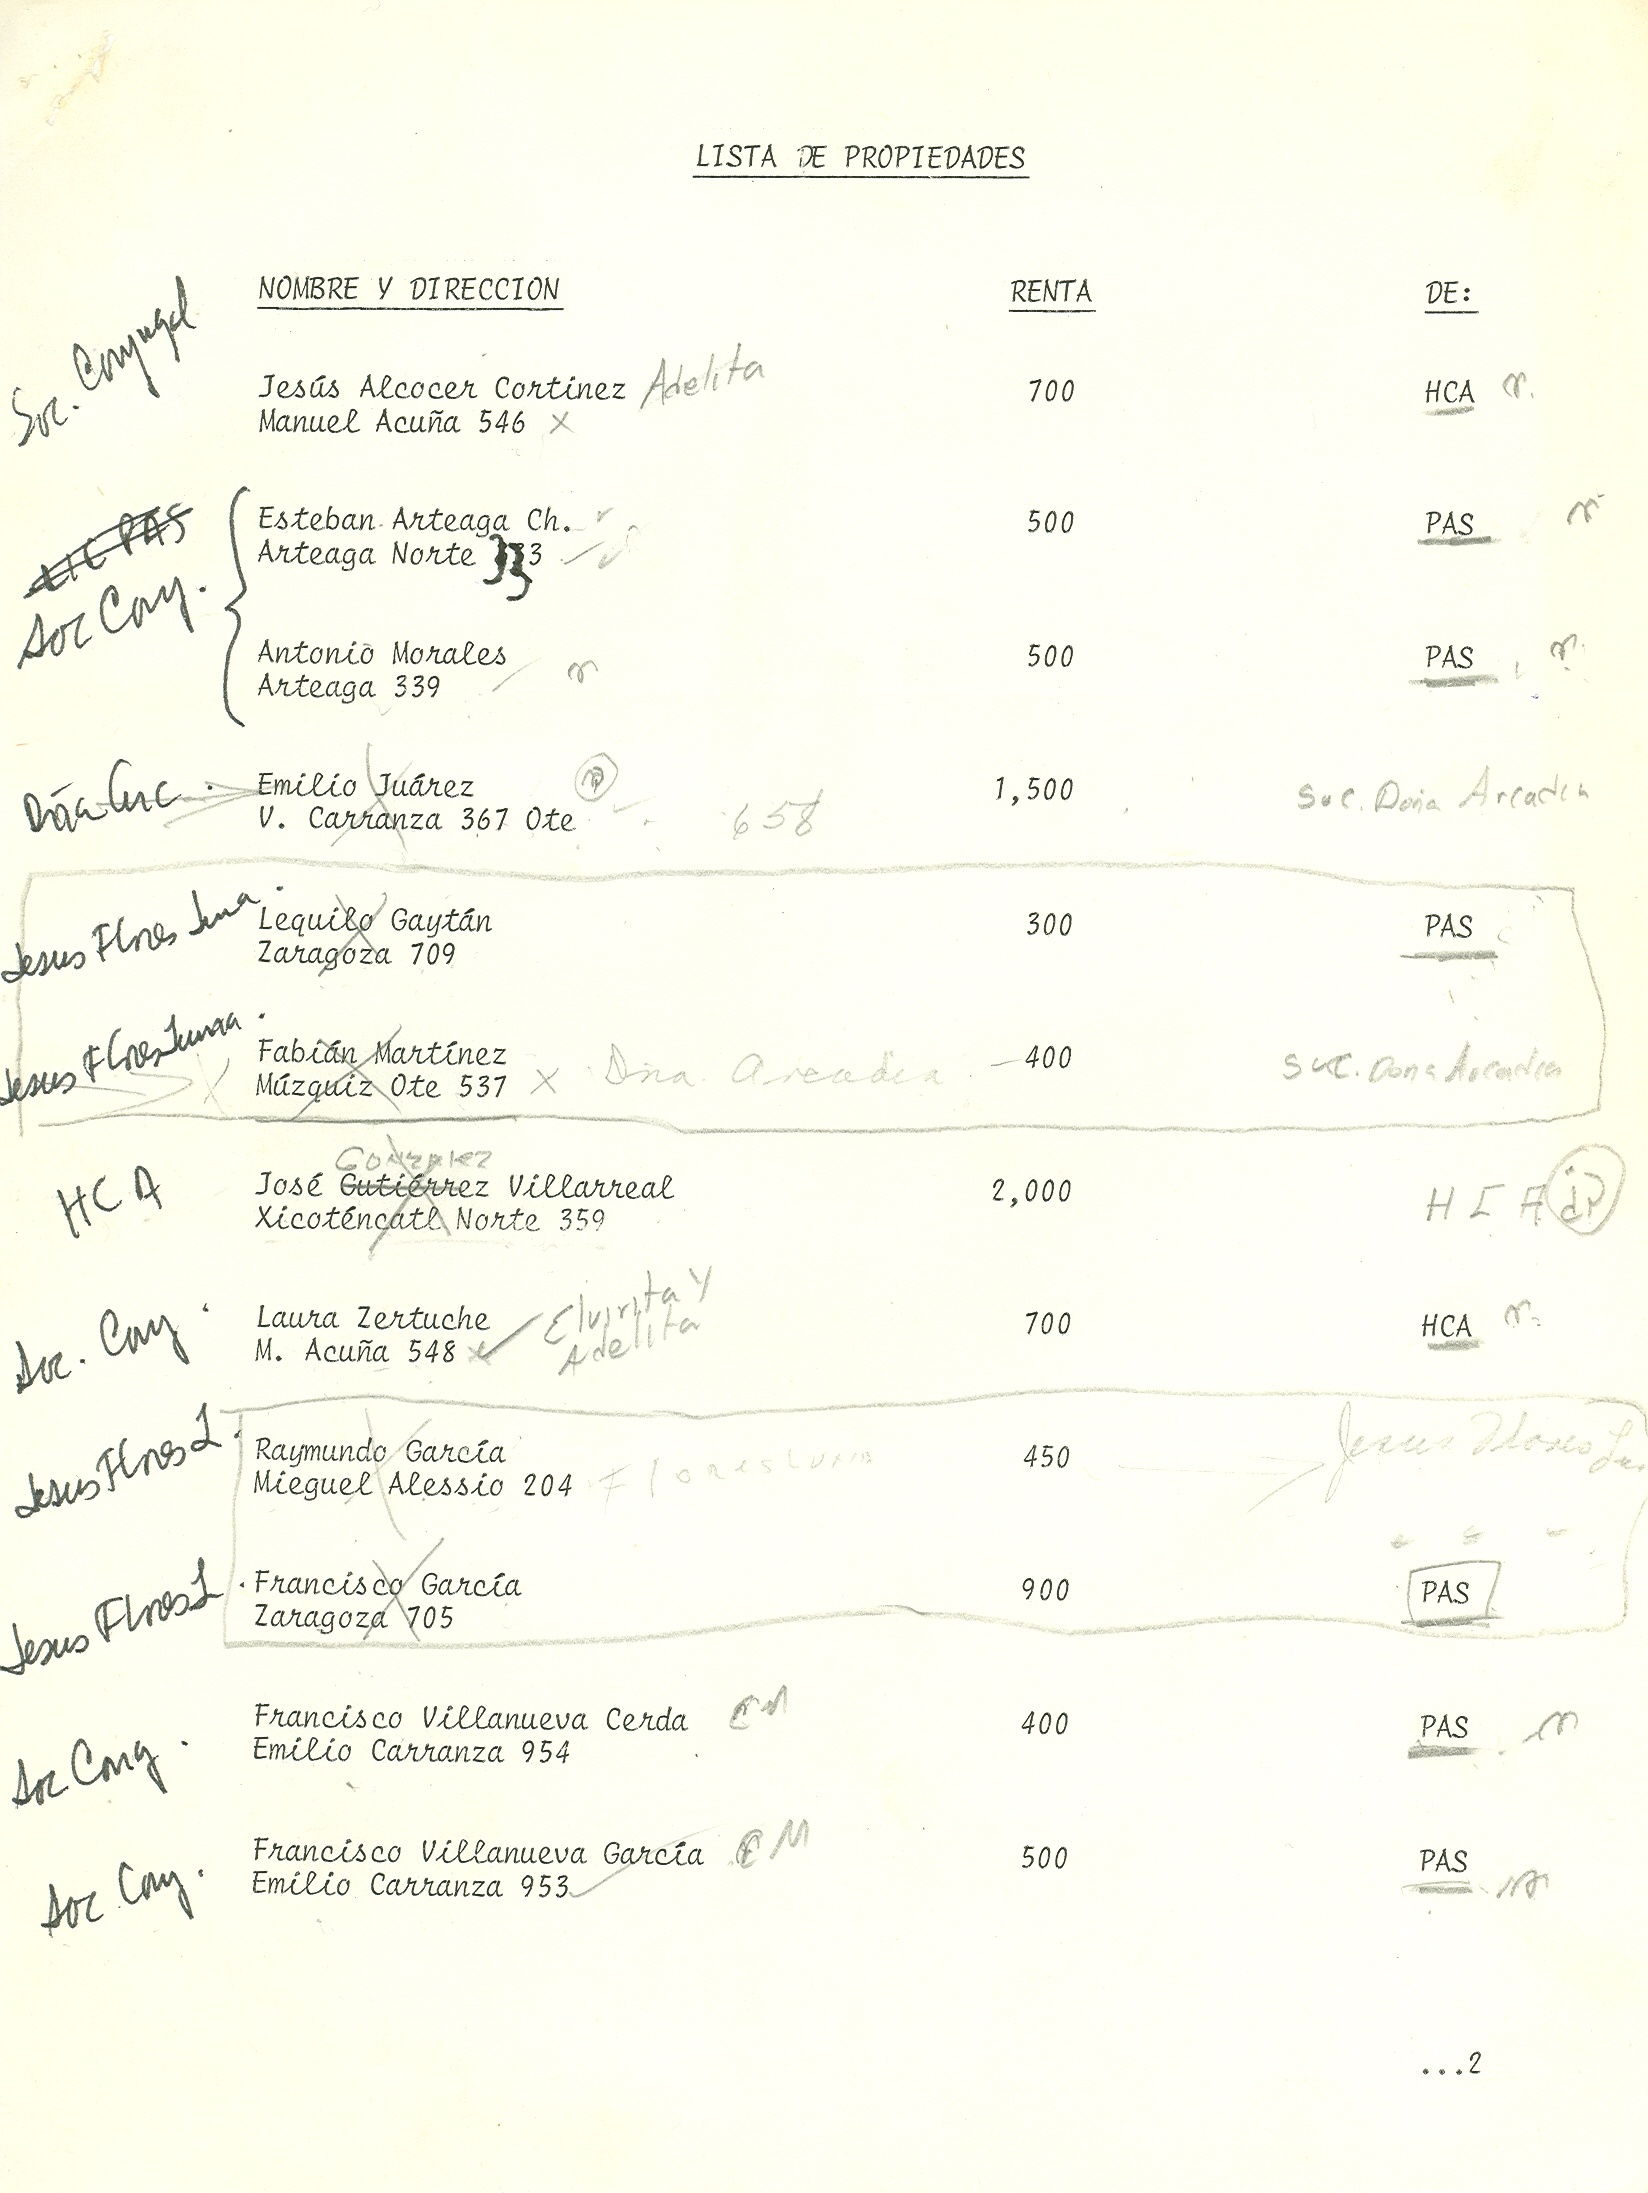 LISTA DE PROPIEDADES
NOMBRE Y DIRECCION RENTA DE:
Soc. Conyugal
Jesús Alcocer Cortinez Adelita 700 HCA
Manuel Acuña 546 x
PAS
Soc Cony.
Esteban Arteaga Ch. 500 PAS
Arteaga Norte 333
Antonio Morales 500 PAS
Arteaga 339
Emilio Juárez 1,500 Suc. Doña Arcadia
V. Carranza 367 Ote 658
Jesus Flores Luna Lequilo Gaytán 300 PAS
Zaragoza 709
Jesus Flores Luna Fabián Martínez 400 Suc. Dona Arcadia
Múzquiz Ote 537 x Dna. Arcadia
Gonzalez
HCA José Gutiérrez Villarreal 2,000 HCA
Xicoténcatl Norte 359
Soc. Cony. Laura Zertuche Elvirita y 700 HCA
M. Acuña 548 Adelita
Jesus Flores L. Raymundo García 450 Jesus Flores Lu
Mieguel Alessio 204 Flores Luna
Jesus Flores L. Francisco García 900 PAS
Zaragoza 705
Soc Cony. Francisco Villanueva Cerda 400 PAS
Emilio Carranza 954
Soc Cony. Francisco Villanueva García 500 PAS
Emilio Carranza 953
...2